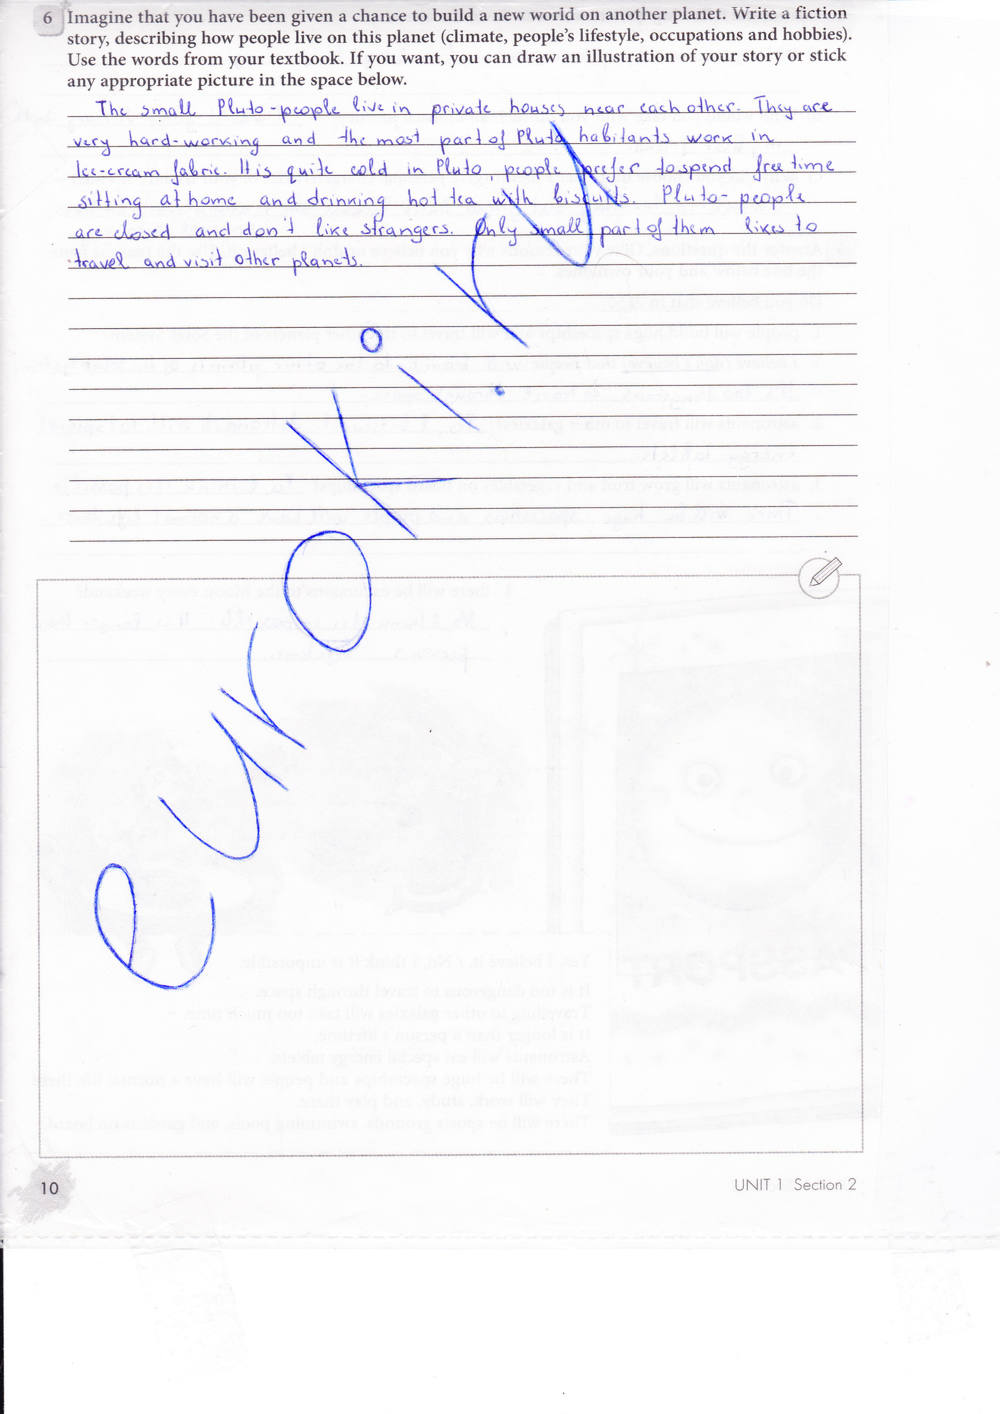 6 Imagine that you have been given a chance to build a new world on another planet. Write a fiction
story, describing how people live on this planet (climate, people's lifestyle, occupations and hobbies).
Use the words from your textbook. If you want, you can draw an illustration of your story or stick
any appropriate picture in the space below.
The small Pluto-people live in private houses near each other. They are
very hard-working and the most part of Pluto habitants work in
Ice-cream fabric. It is quite cold in Pluto, people prefer to spend free time
sitting at home and drinking hot tea with biscuits. Pluto-people
are closed and don't like strangers. Only small part of them likes to
travel and visit other planets.
euroki.ru
10
UNIT 1 Section 2